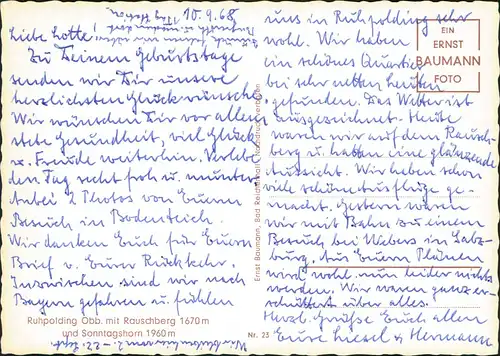 10.9.68
Liebe Lotte.
Zu Deinem Geburtstage
senden wir Dir unsere
herzlichsten Glückwünsche
Wir wünschen Dir vor allem
stets Gesundheit, viel Glück
u. Freude weiterhin. Verlebe
den Tag recht froh u. munter
Anbei 2 Photos von Euerm
Besuch in Bodenteich.
Wir danken Euch für Euern
Brief v. Eurer Rückkehr.
Inzwischen sind wir nach
Bayern gefahren u. fühlen
uns in Ruhpolding sehr
wohl. Wir haben
ein schönes Quartier
bei sehr netten Leuten
gefunden. Das Wetter ist
ausgezeichnet. Heute
waren wir auf dem Rausch-
berg u. hatten eine glänzende
Aussicht. Wir haben schon
viele schöne Ausflüge ge-
macht. Gestern waren
wir mit Bahn zu einem
Besuch bei Webers in Salz-
burg. Aus Euern Plänen
wird wohl nun leider nichts
werden. Wir waren ganz er-
schüttert über alles.
Herzl. Grüße Euch allen
Eure Liesel u. Hermann
EIN
ERNST
BAUMANN
FOTO
Ernst Baumann, Bad Reichenhall
Ruhpolding Obb. mit Rauschberg 1670 m
und Sonntagshorn 1960 m
Nr. 23